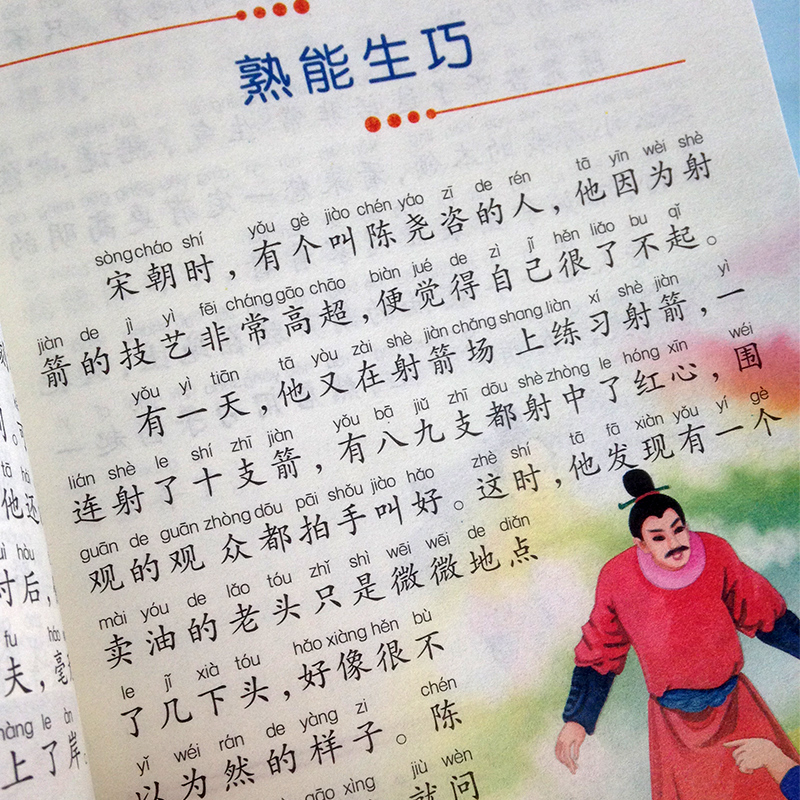 熟能生巧
sòng cháo shí yǒu gè jiào chén yáo zī de rén tā yīn wèi shè
宋朝时，有个叫陈尧咨的人，他因为射
jiàn de jì yì fēi cháng gāo chāo biàn jué de zì jǐ hěn liǎo bu qǐ
箭的技艺非常高超，便觉得自己很了不起。
yǒu yì tiān tā yòu zài shè jiàn chǎng shang liàn xí shè jiàn yì
有一天，他又在射箭场上练习射箭，一
lián shè le shí zhī jiàn yǒu bā jiǔ zhī dōu shè zhòng le hóng xīn wéi
连射了十支箭，有八九支都射中了红心，围
guān de guān zhòng dōu pāi shǒu jiào hǎo zhè shí tā fā xiàn yǒu yí gè
观的观众都拍手叫好。这时，他发现有一个
mài yóu de lǎo tóu zhǐ shì wēi wēi de diǎn
卖油的老头只是微微地点
le jǐ xià tóu hǎo xiàng hěn bù
了几下头，好像很不
yǐ wéi rán de yàng zi chén
以为然的样子。陈
gāo xìng jiù wèn
就问
他还
时后，
夫，毫
上了岸。